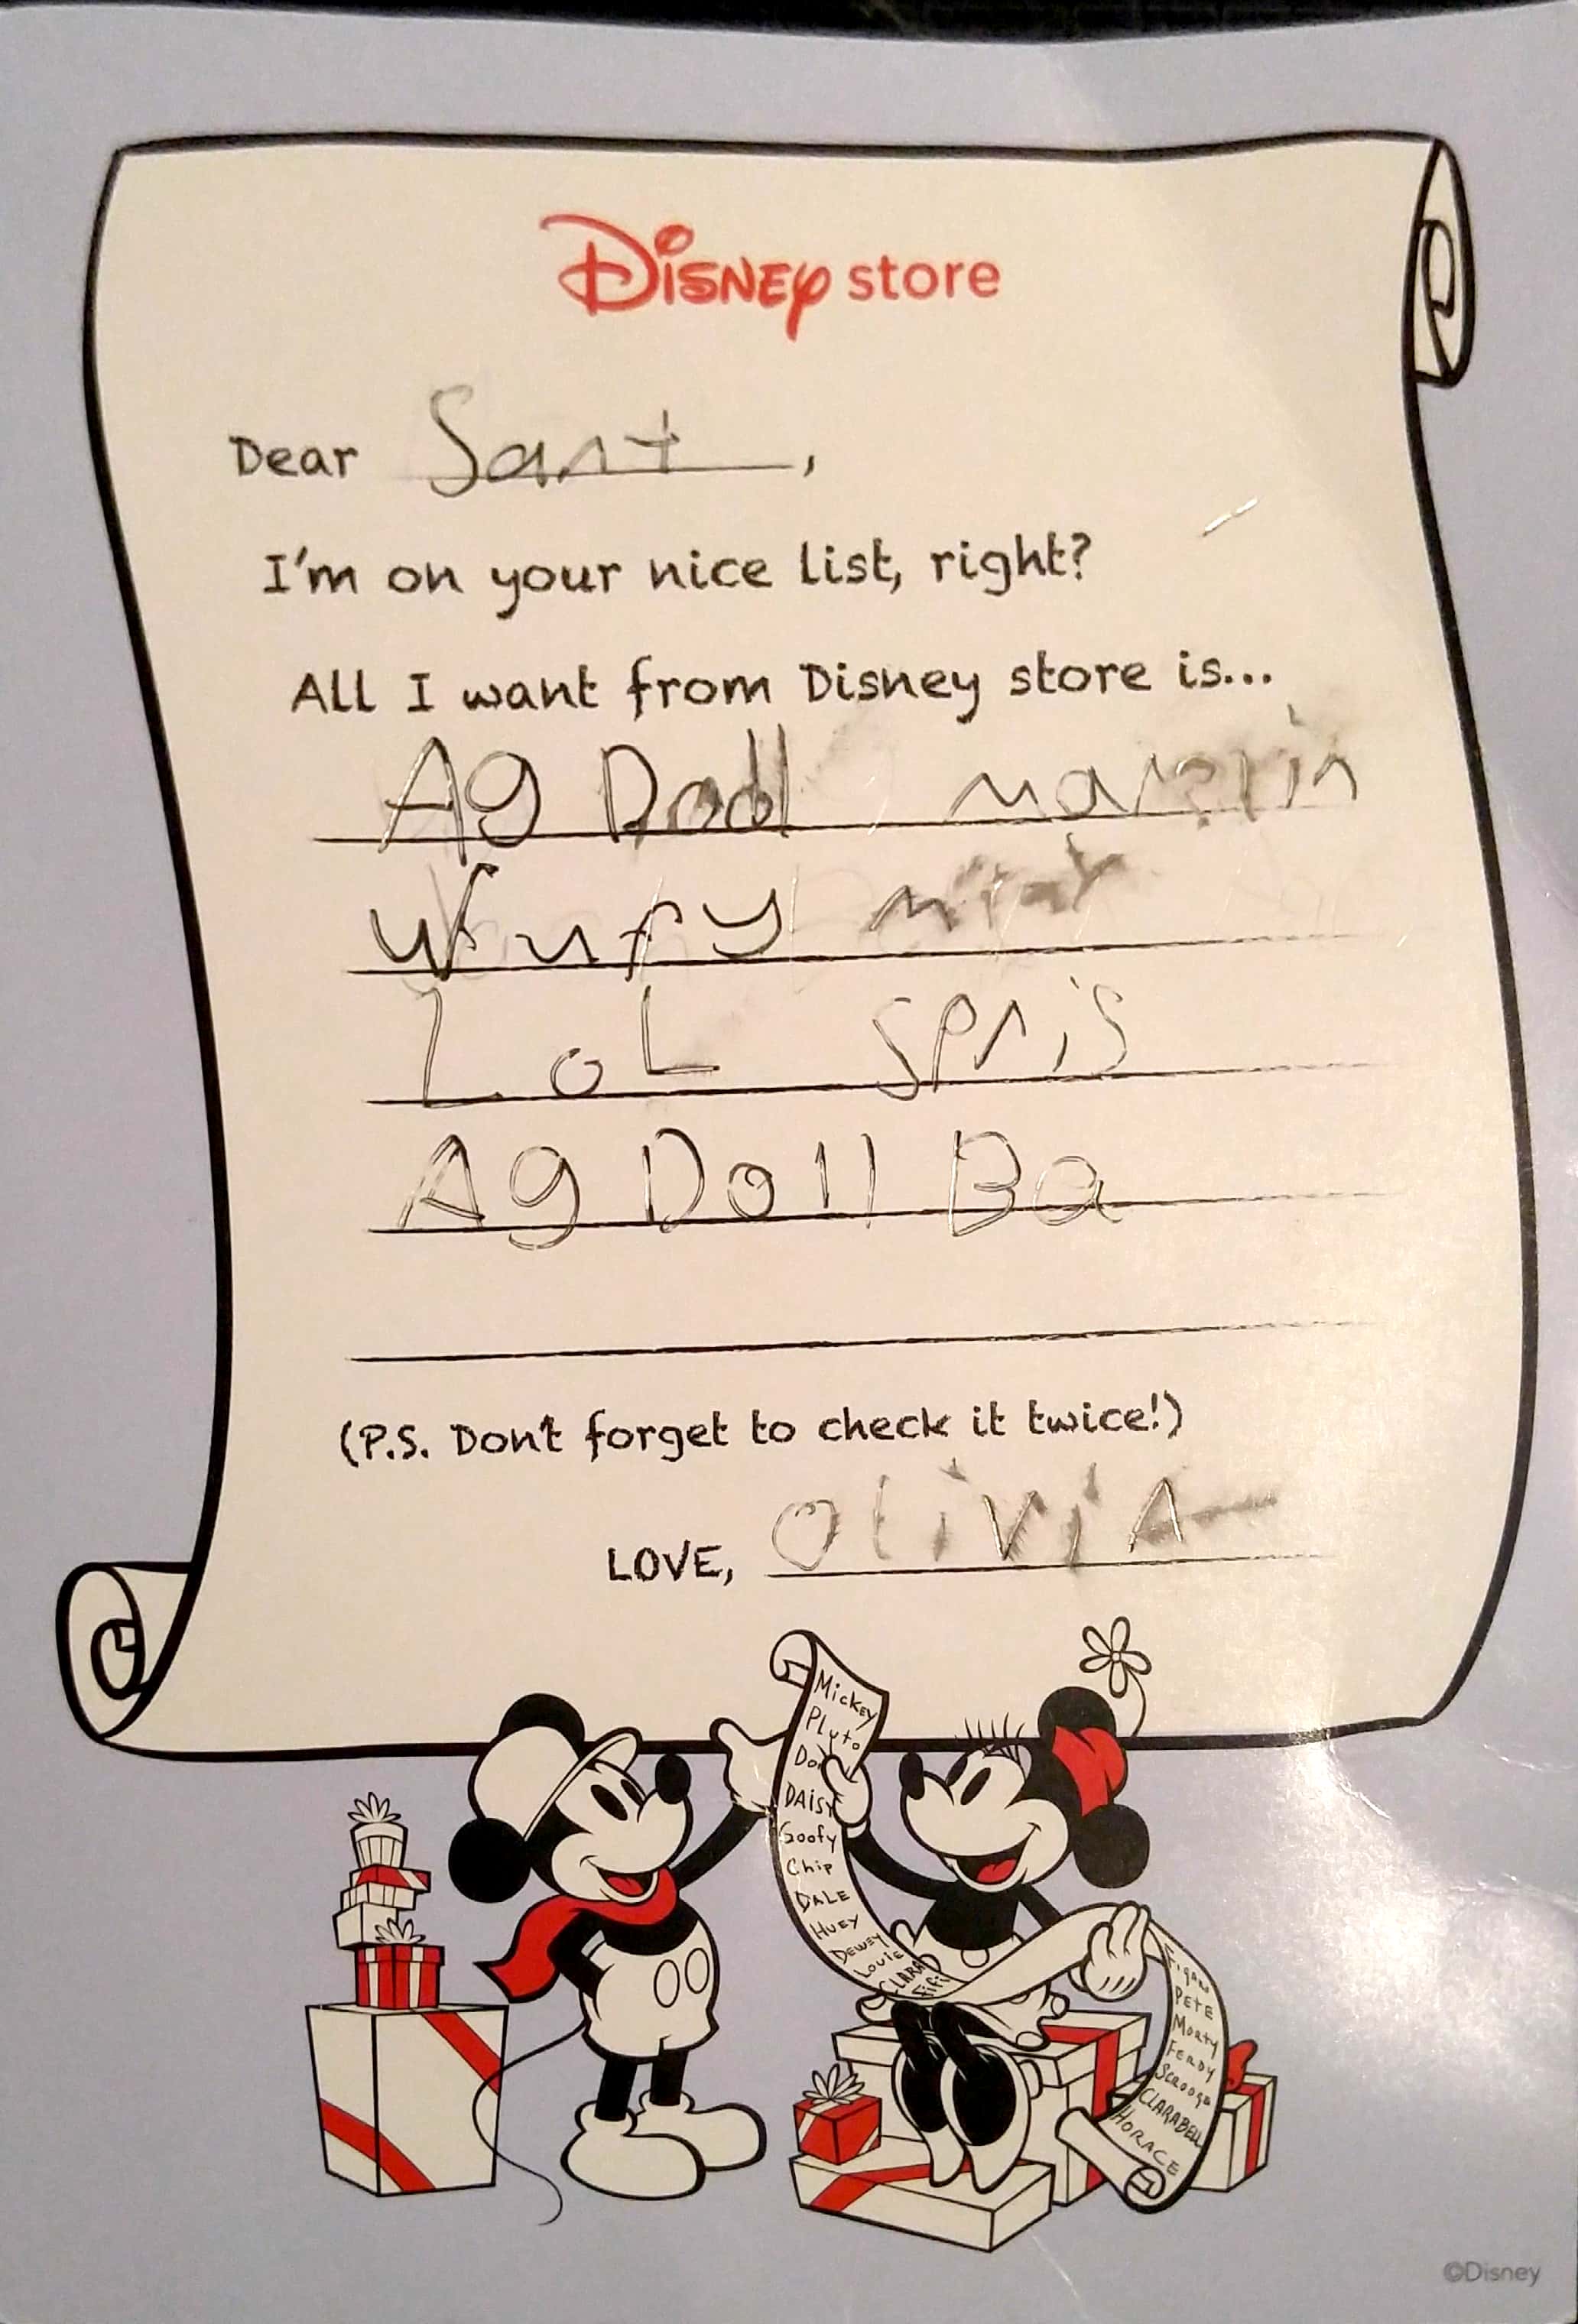 Disney store
Dear Sant,
I'm on your nice list, right?
All I want from Disney store is...
Ag Doll
LoL spris
Ag Doll Ba
(P.S. Don't forget to check it twice!)
LOVE, OliviA
Mickey
Pluto
DAISY
Goofy
Chip
DALE
HUEY
DEWEY
LOUIE
CLARA
Fifi
Figaro
PETE
Morty
FERDY
SCROOGE
CLARABELL
HORACE
©Disney